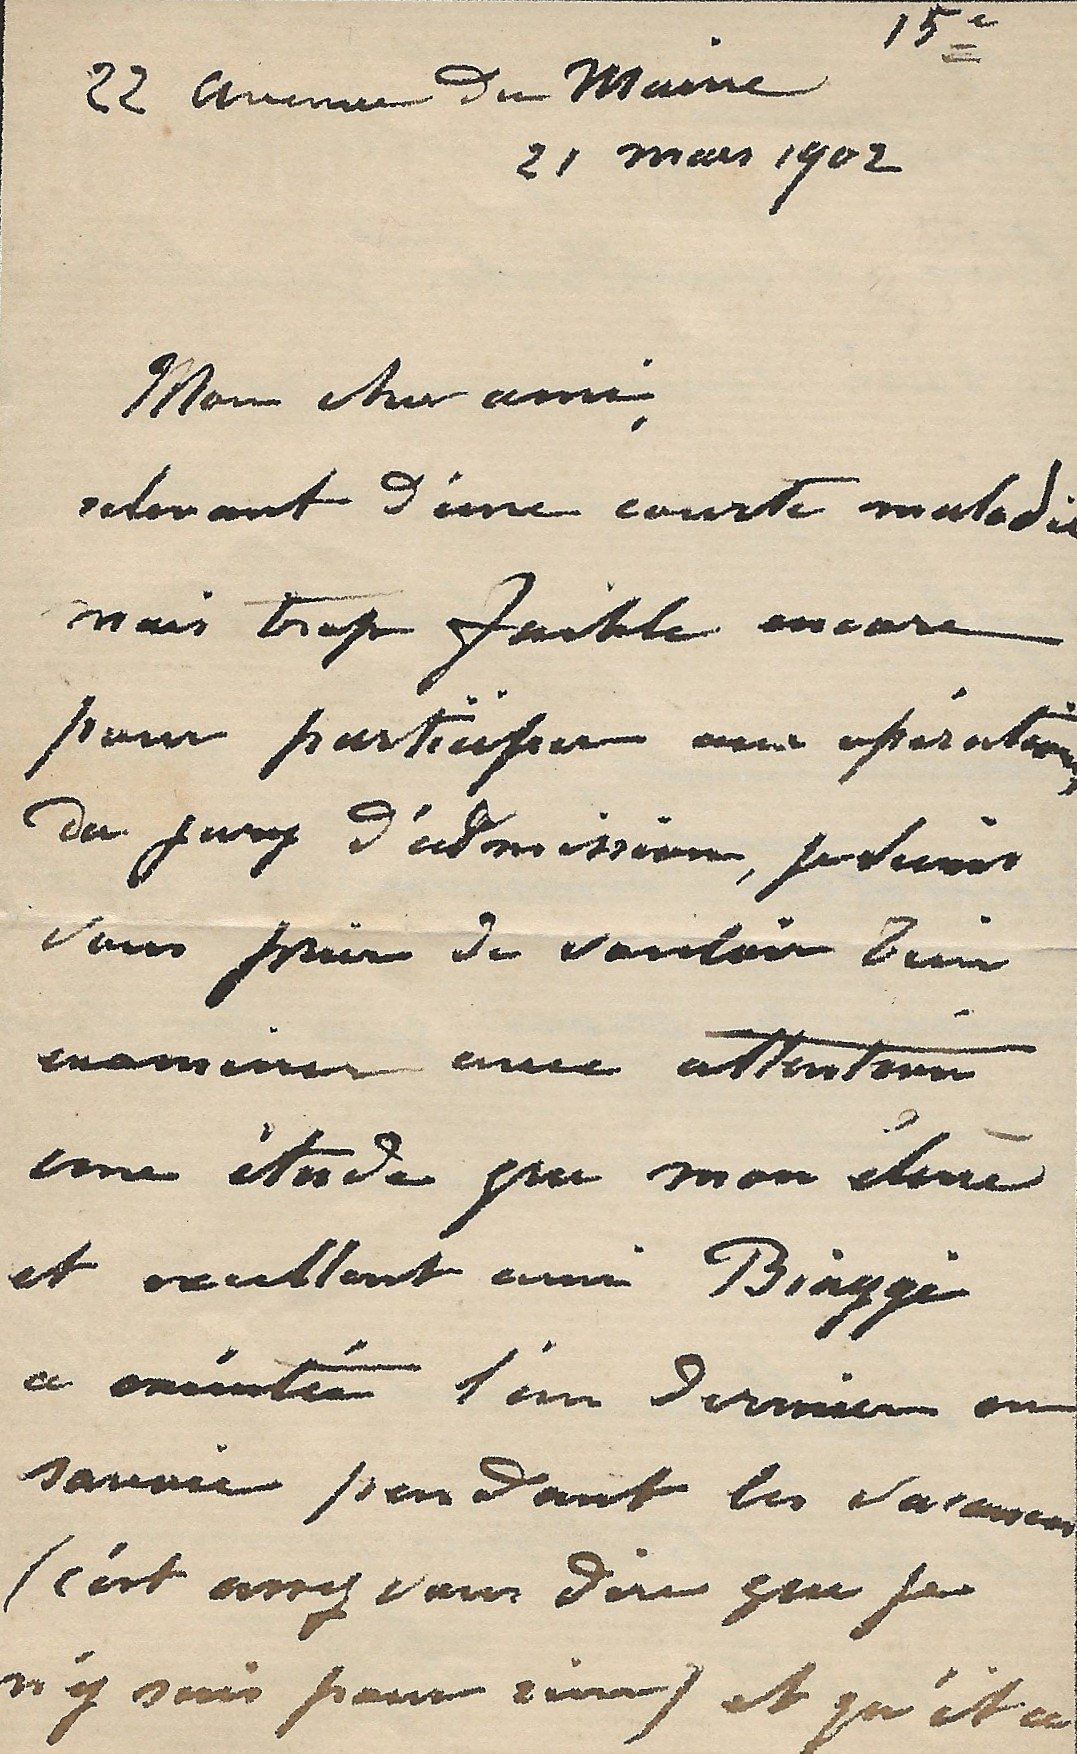 15e
22 avenue du Maine
21 mars 1902
Mon cher ami,
relevant d'une courte maladie
mais trop faible encore
pour participer aux opérations
du jury d'admission, je viens
vous prier de vouloir bien
examiner avec attention
une étude que mon élève
et excellent ami Biaggi
a exécutée l'an dernier en
Savoie pendant les vacances
(c'est assez vous dire que je
n'y suis pour rien) et qu'il a